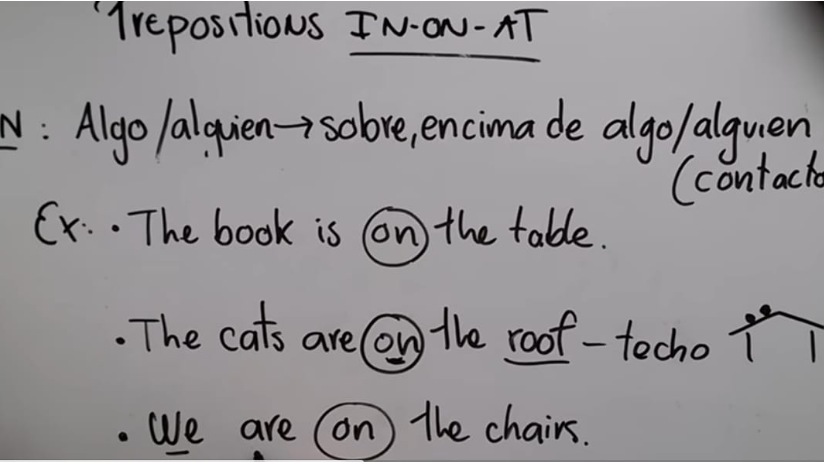 Prepositions IN-ON-AT
N: Algo/alguien→sobre, encima de algo/alguien
(contacto
Ex: • The book is on the table.
• The cats are on the roof - techo
• We are on the chairs.